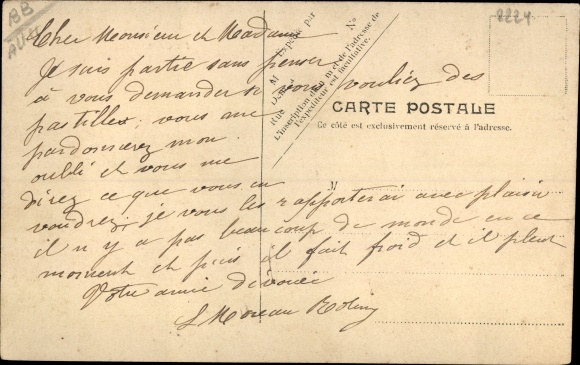 BB
AU
8224
Cher Monsieur et Madame
Je suis partie sans penser
à vous demander si vous vouliez des
pastilles, vous me
pardonnerez mon
oubli et vous me
direz ce que vous en
voudrez, je vous les rapporterai avec plaisir
il n y a pas beaucoup de monde en ce
moment et puis il fait froid et il pleut
Votre amie dévouée
L Moreau
Expédié par
M
No
Rue
L'inscription du nom et de l'adresse de
l'expéditeur est facultative.
CARTE POSTALE
Ce côté est exclusivement réservé à l'adresse.
M